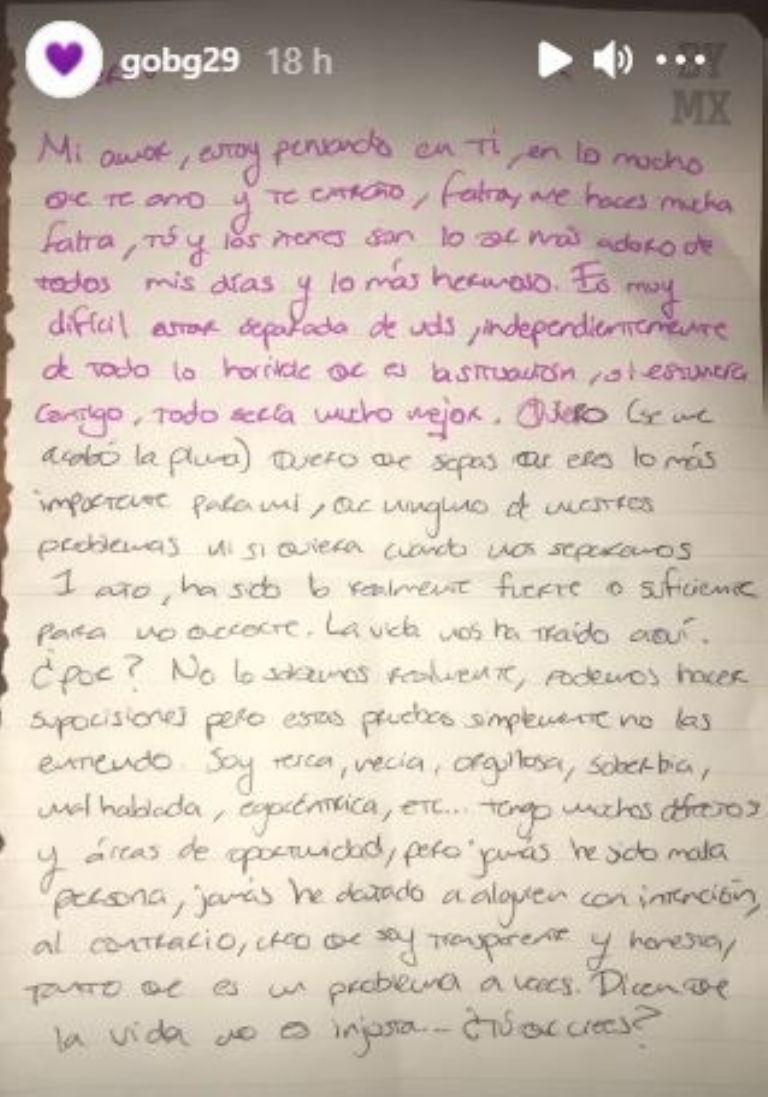 gobg29 18 h
MX
Mi amor, estoy pensando en ti, en lo mucho
que te amo y te extraño, faltay me haces mucha
falta, tú y los nenes son lo que más adoro de
todos mis días y lo más hermoso. Es muy
difícil estar separada de uds, independientemente
de todo lo horrible que es la situación, si estuviera
contigo, todo sería mucho mejor. Quiero (se me
acabó la pluma) Quiero que sepas que eres lo más
importante para mi, que ninguno de nuestros
problemas ni si quiera cuando nos separamos
1 año, ha sido lo realmente fuerte o suficiente
para no. La vida nos ha traído aquí.
¿por? No lo sabemos realmente, podemos hacer
suposisiones pero estas pruebas simplemente no las
entiendo. Soy terca, necia, orgullosa, soberbia,
mal hablada, egocéntrica, etc... tengo muchos defectos
y áreas de oportunidad, pero jamás he sido mala
persona, jamás he dañado a alguien con intención,
al contrario, creo que soy transparente y honesta,
tanto que es un problema a veces. Dicen que
la vida no es injusta... ¿Tú que crees?